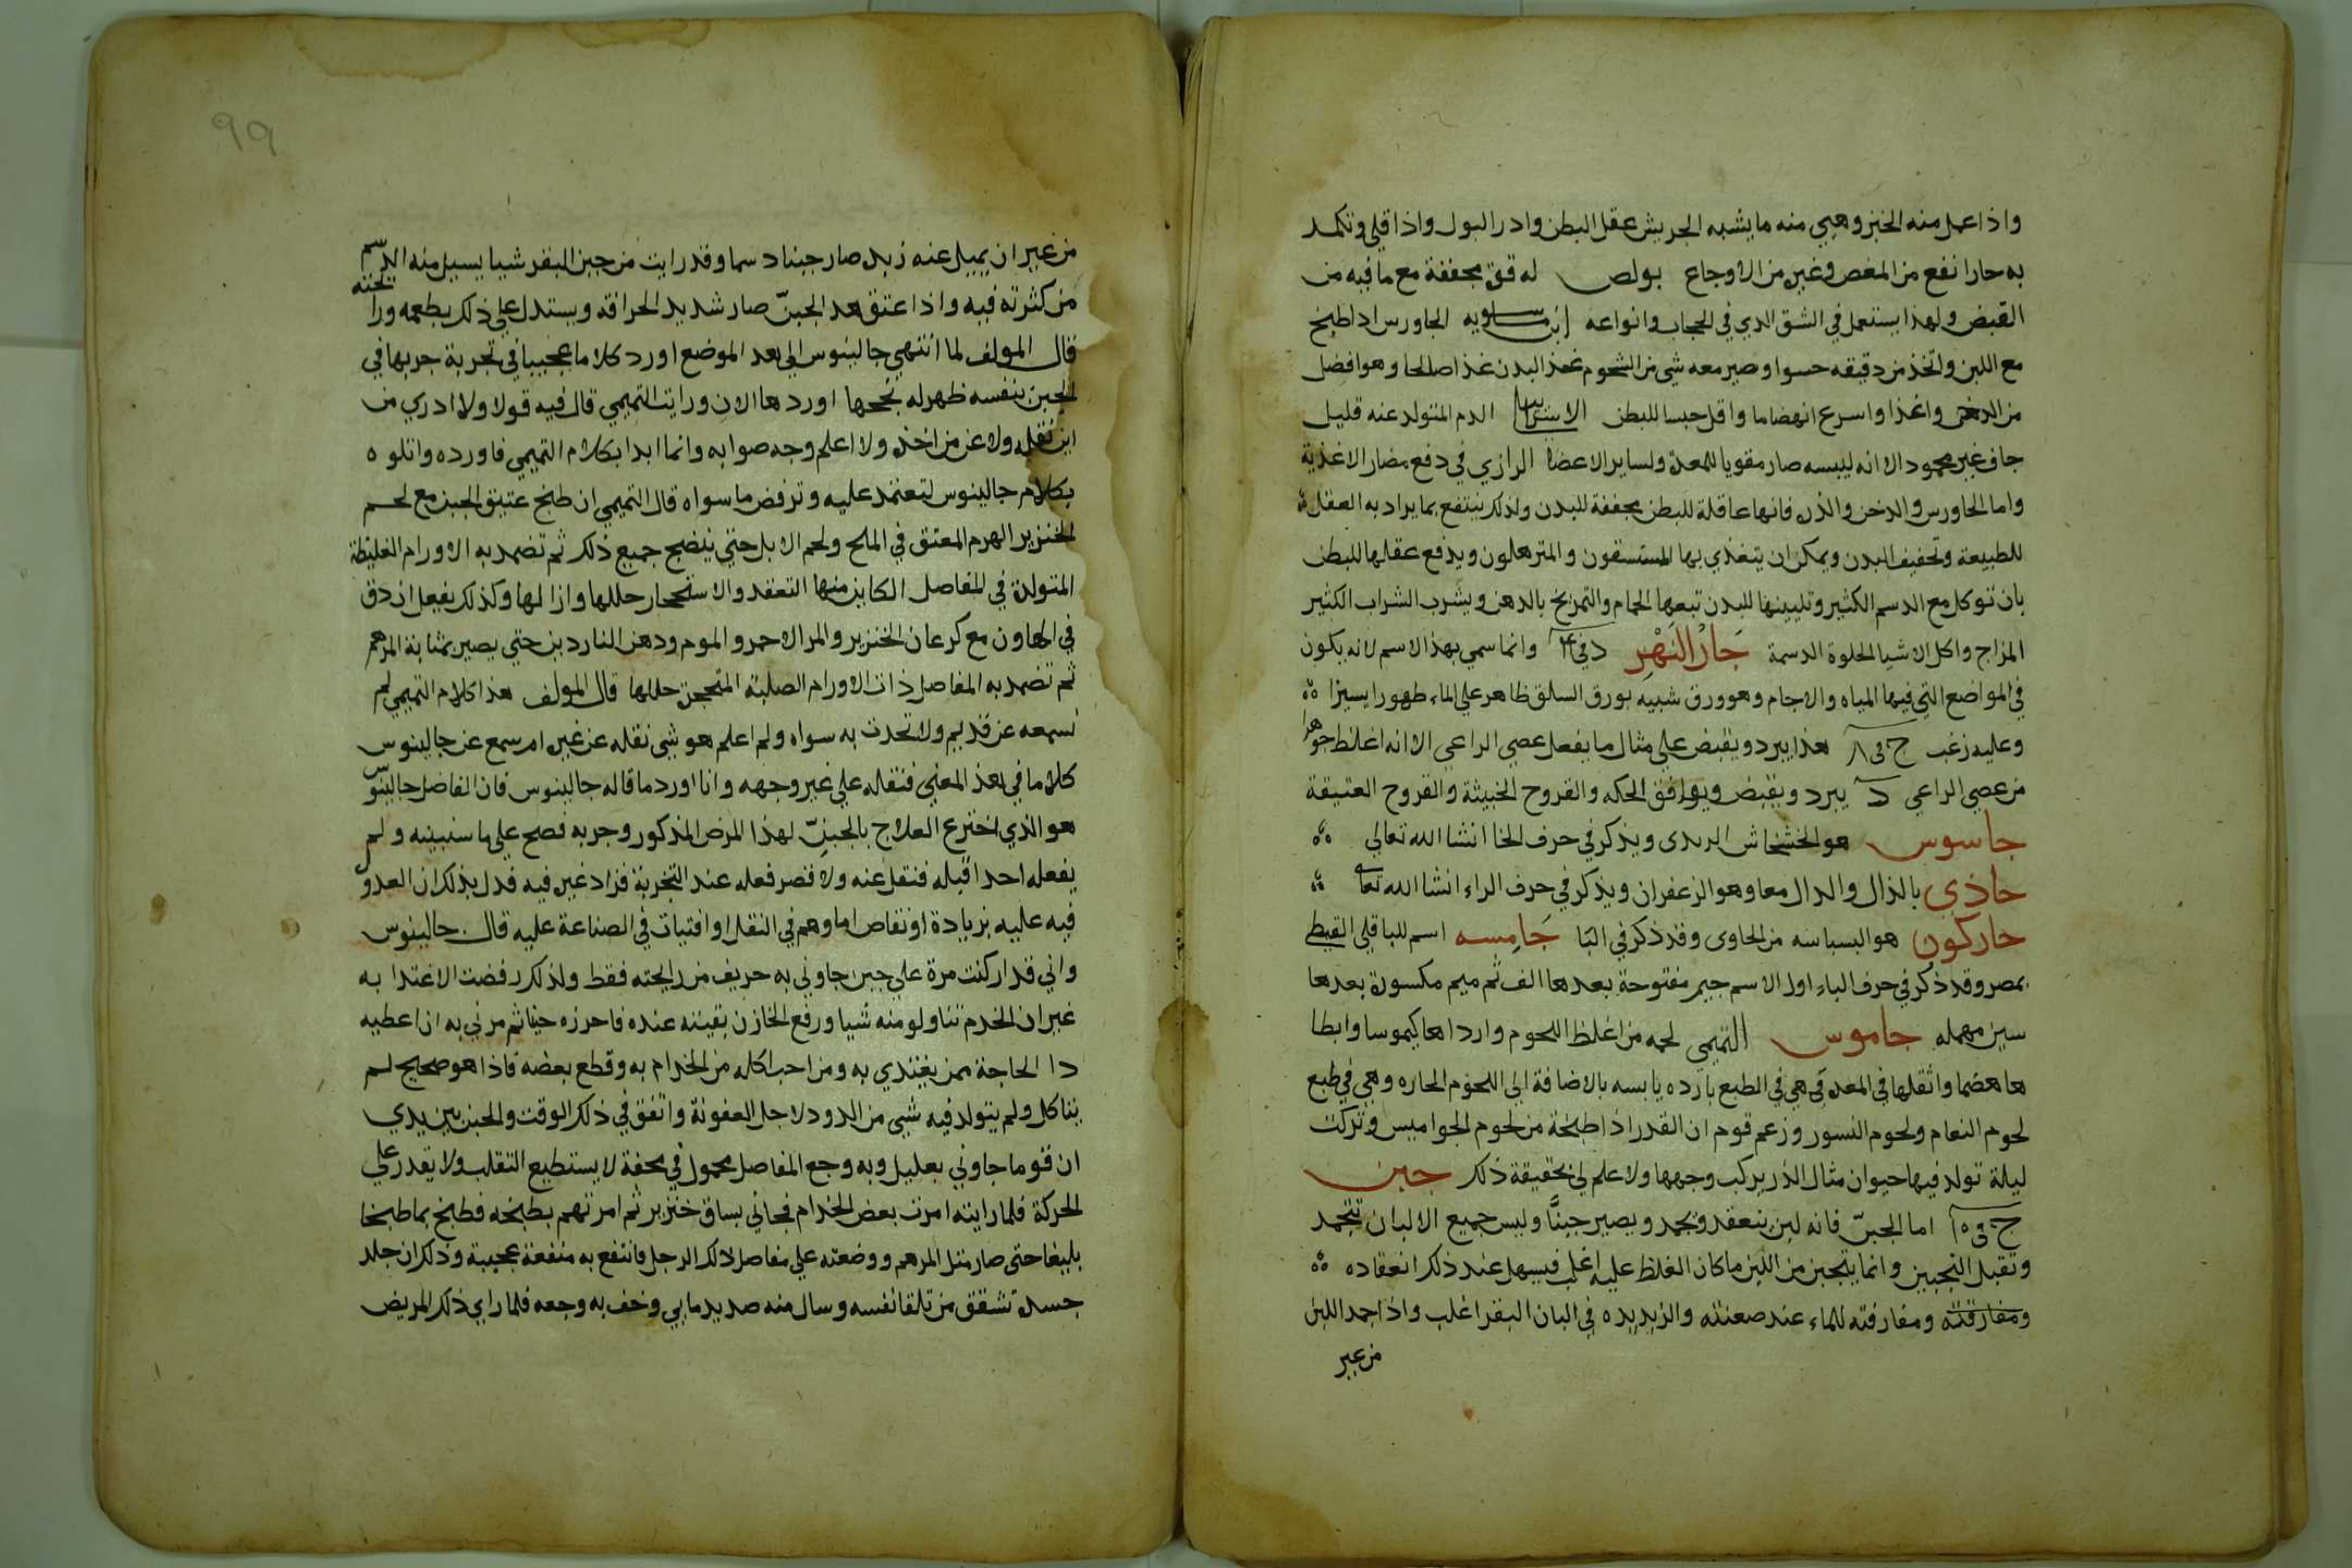 واذا عمل منه الخبز وهيي منه ما يشبه الجريش عقل البطن وادر البول واذا قلي وتكمد
به حارا نفع من المغص وغيره من الاوجاع بولص له قوة مجففة مع ما فيه من
القبض ولهذا يستعمل في الشق الذي في الحجاب وانواعه ابن ماسويه الجاورس اذا طبخ
مع اللبن واتخذ من دقيقه حسوا وصير معه شي من الشحوم غذا البدن غذا صالحا وهو افضل
من الدخن واغذا واسرع انهضاما واقل حبسا للبطن الاسرائيلي الدم المتولد عنه قليل
جاف غير محمود الا انه ليبسه صار مقويا للمعدة ولساير الاعضا الرازي في دفع مضار الاغذية
واما الجاورس والدخن والذره فانها عاقلة للبطن مجففة للبدن ولذلك ينتفع بما يراد به العقل
للطبيعة وتجفيف البدن ويمكن ان يتغذي بها المستسقون والمترهلون ويدفع عقلها للبطن
بان توكل مع الدسم الكثير وتليينها للبدن تبعها الحمام والتمريخ بالدهن ويشرب الشراب الكثير
المزاج واكل الاشيا الحلوة الدسمة جَارُ النَهْرِ د في ٤ وانما سمي بهذا الاسم لانه يكون
في المواضع التي فيها المياه والاجام وهو ورق شبيه بورق السلق ظاهر علي الماء ظهورا يسيرا
وعليه زغب ج في ٨ هذا يبرد ويقبض علي مثال ما يفعل عصي الراعي الا انه اغلظ جوهرا
من عصي الراعي د يبرد ويقبض ويوافق الحكه والقروح الخبيثة والقروح العتيقة
جاسوس هو الخشخاش الزبدى ويذكر في حرف الخا انشا الله تعالي
جاذي بالذال والدال معا وهو الزعفران ويذكر في حرف الراء انشا الله تعالى
جاركون هو البسباسه من الحاوى وقد ذكر في البا جَامِسه اسم للباقلي القبطي
بمصر وقد ذكر في حرف الباء اول الاسم جيم مفتوحة بعدها الف ثم ميم مكسورة بعدها
سين مهمله جاموس التميمي لحمه من اغلظ اللحوم وارداها كيموسا وابطا
ها هضما واثقلها في المعدة وهي في الطبع بارده يابسه بالاضافة الي اللحوم الحاره وهي في طبع
لحوم النعام ولحوم النسور وزعم قوم ان القدر اذا طبخة من لحوم الجواميس وتركت
ليلة تولد فيها حيوان مثال الذر يركب وجهها ولا علم لي بحقيقة ذلك جبن
ج في ١٠ اما الجبنّ فانه لبن ينعقد ويجمد ويصير جبنًّا وليس جميع الالبان تتجمد
وتقبل التجبين وانما يتجبن من اللبن ما كان الغلظ عليه اغلب فيسهل عند ذلك انعقاده
ومفارقته ومفارقته للماء عند صعنته والزبد يده في البان البقر اغلب واذا جمد اللبن
من غير
٩٩
من غير ان يميل عنه زبده صار جبنا دسما وقد رايت من جبن البقر شيا يسيل منه الدسم
من كثرته فيه واذا عتق هذ الجبنّ صار شديد الحرافة ويستدل علي ذلك بطعمه ورائحته
قال المولف لما انتهي جالينوس الي هذ الموضع اورد كلاما عجيبا في تجربة جربها في
الجبن بنفسه ظهر له نجحها اوردها الان ورايت التميمي قال فيه قولا ولا ادري من
اين نقله ولا عن من اخذه ولا اعلم وجه صوابه وانما ابدا بكلام التميمي فاورده واتلوه
بكلام جالينوس لتعتمد عليه وترفض ما سواه قال التميمي ان طبخ عتيق الجبن مع لحم
الخنزير الهرم المعتق في الملح ولحم الابل حتي ينضج جميع ذلك ثم تضمد به الاورام الغليظة
المتولدة في المفاصل الكاين منها التعقد والاستحجار حللها وازالها وكذلك يفعل ان دق
في الهاون مع كرعان الخنزير والمر الاحمر والموم ودهن الناردين حتي يصير بمثابة المرهم
ثم تضمد به المفاصل ذات الاورام الصلبة المتحجرة حللها قال المولف هذا كلام التميمي لم
نسمعه عن قديم ولا تحدث به سواه ولم اعلم هو شي نقله عن غيره ام سمع عن جالينوس
كلاما في هذ المعني فنقله علي غير وجهه وانا اورد ما قاله جالينوس فان الفاضل جالينوس
هو الذي اخترع العلاج بالجبنّ لهذا المرض المذكور وجربه فصح علي ما سنبينه ولم
يفعله احدا قبله فنقل عنه ولا قصر فعله عند التجربة فزاد غيره فيه فدل بذلك ان العدول
فيه عليه بزيادة او نقاص اما وهم في النقل او افتيات في الصناعة عليه قال جالينوس
واني قدار كنت مرة علي جبن جاوني به حريف من رايحته فقط ولذلك رفضت الاغتذا به
غير ان الخدم تناولو منه شيا ورفع الخازن بقيته عنده فاحرزه حينا ثم مرني به ان اعطيه
ذا الحاجة ممن يغتذي به ومن احب اكله من الخدام به وقطع بعضه فاذا هو صحيح لم
يتاكل ولم يتولد فيه شيي من الدود لاجل العفونة واتفق في ذلك الوقت والجبن بين يدي
ان قوما جاوني بعليل وبه وجع المفاصل محمول في محفة لا يستطيع التقلب ولا يقدر علي
الحركة فلما رايته امرت بعض الخدام فجاني بساق خنزير ثم امرتهم بطبخه فطبخ بما طبخا
بليغا حتى صار مثل المرهم ووضعته علي مفاصل ذلك الرجل فانتفع به منفعة عجيبة وذلك ان جلد
جسده تشقق من تلقا نفسه وسال منه صديد مايي وخف به وجعه فلما راي ذلك المريض